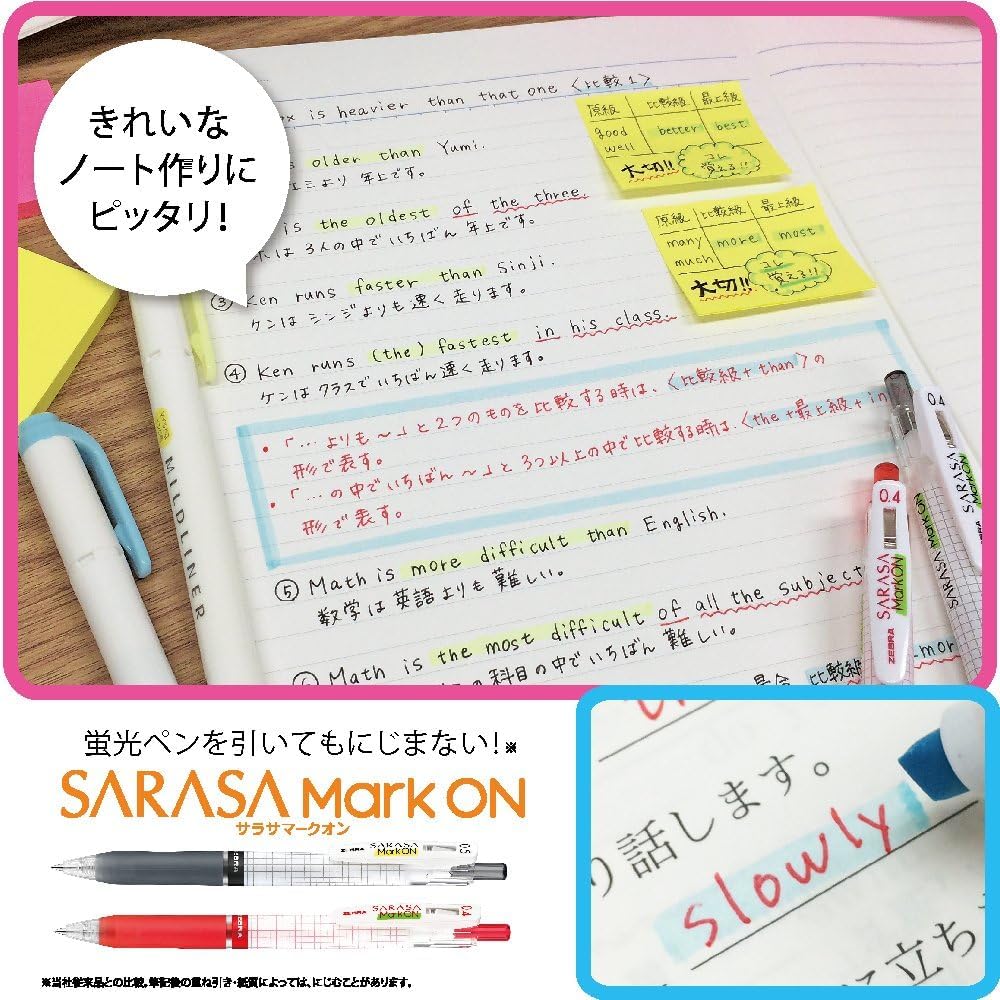 きれいな
ノート作りに
ピッタリ!
is heavier than that one 〈比較1〉
older than Yumi.
より 年上です。
is the oldest of the three.
は 3人の中でいちばん 年上です。
③ Ken runs faster than Sinji.
ケンは シンジよりも 速く 走ります。
④ Ken runs (the) fastest in his class.
ケンは クラスで いちばん 速く 走ります。
原級 比較級 最上級
good better best
well
大切!! コレ
覚える!!
原級 比較級 最上級
many more most
much
大切!! コレ
覚える!!
・「… よりも ～」と 2つのものを 比較する時は、〈比較級+than〉の
形で表す。
・「… の中でいちばん ～」と 3つ以上の中で比較する時は、〈the+最上級+in
形で表す。
⑤ Math is more difficult than English.
数学は 英語よりも 難しい。
Math is the most difficult of all the subject
の科目の中で いちばん 難しい。
比較級
more
MILDLINER
0.4
SARASA
MarkON
ZEBRA
0.4
SARASA
MarkON
SARASA MarkON
蛍光ペンを引いてもにじまない!※
SARASA Mark ON
サラサマークオン
ZEBRA SARASA MarkON 0.5
ZEBRA ZEBRA SARASA MarkON 0.4
※当社従来品との比較。筆記後の重ね引き・紙質によっては、にじむことがあります。
り話します。
slowly
に立ち